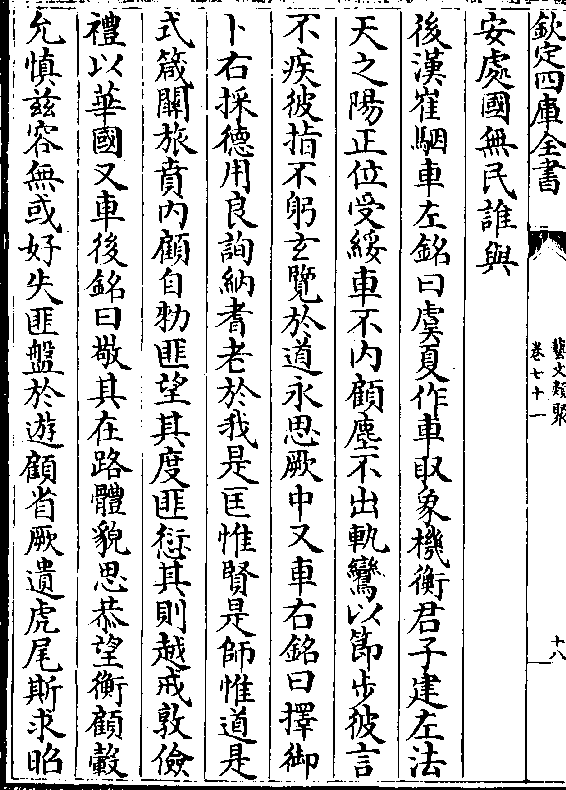 欽定四庫全書
藝文類聚
卷七十一
十八
安處國無民誰與
後漢崔駰車左銘曰虞夏作車取象機衡君子建左法
天之陽正位受綏車不內顧塵不出軌鸞以節步彼言
不疾彼指不躬玄覽於道永思厥中又車右銘曰擇御
卜右採德用良詢納耆老於我是匡惟賢是師惟道是
式箴闕旅賁內顧自勑匪望其度匪愆其則越戒敦儉
禮以華國又車後銘曰敬其在路體貌思恭望衡顧轂
允慎兹容無或好失匪盤於遊顧省厥遺虎尾斯求昭